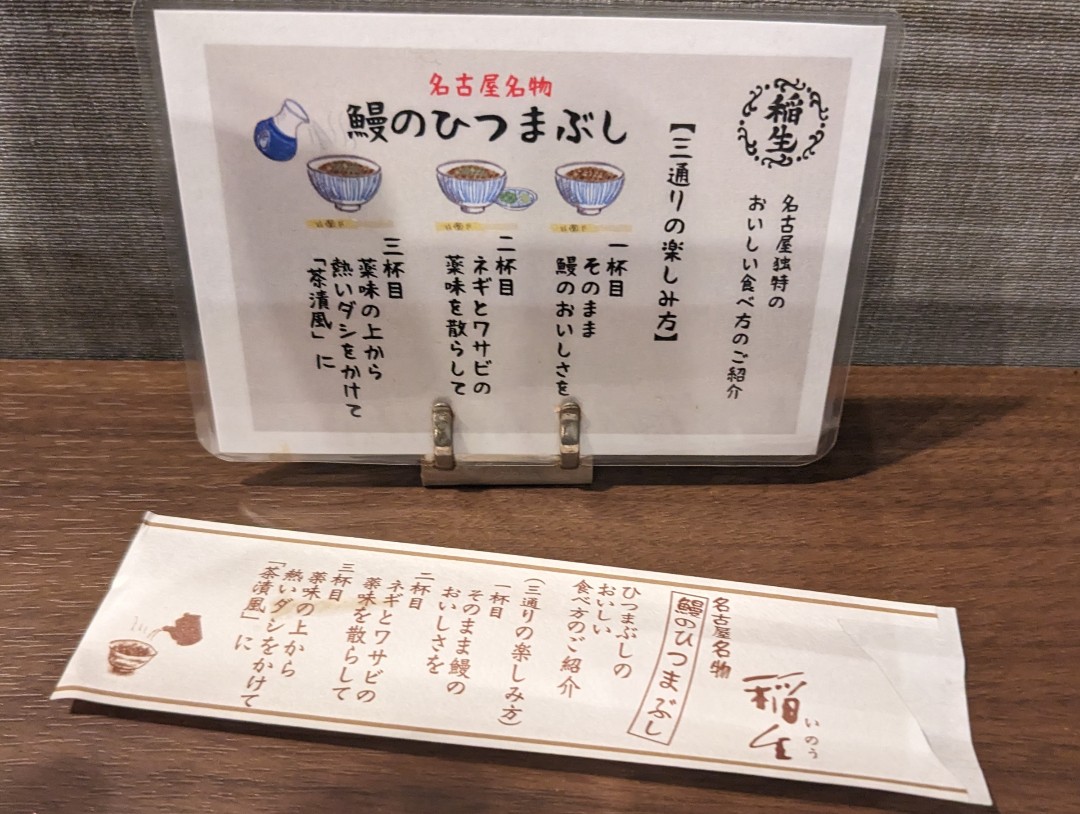 稲生
名古屋独特の
おいしい食べ方のご紹介
名古屋名物
鰻のひつまぶし
【三通りの楽しみ方】
一杯目
そのまま
鰻のおいしさを
二杯目
ネギとワサビの
薬味を散らして
三杯目
薬味の上から
熱いダシをかけて
「茶漬風」に
稲生
いのう
名古屋名物
鰻のひつまぶし
ひつまぶしの
おいしい
食べ方のご紹介
(三通りの楽しみ方)
一杯目
そのまま鰻の
おいしさを
二杯目
ネギとワサビの
薬味を散らして
三杯目
薬味の上から
熱いダシをかけて
「茶漬風」に